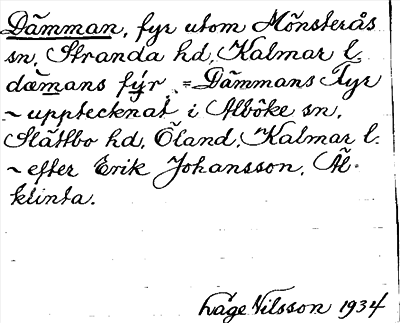 Dämman, fyr utom Mönsterås
sn, Stranda hd, Kalmar l.
dæmans fýr = Dämmans Fyr
~ upptecknat i Alböke sn,
Slättbo hd, Öland, Kalmar l.
~ efter Erik Johansson, Äl-
klinta.
Låge Nilsson 1934